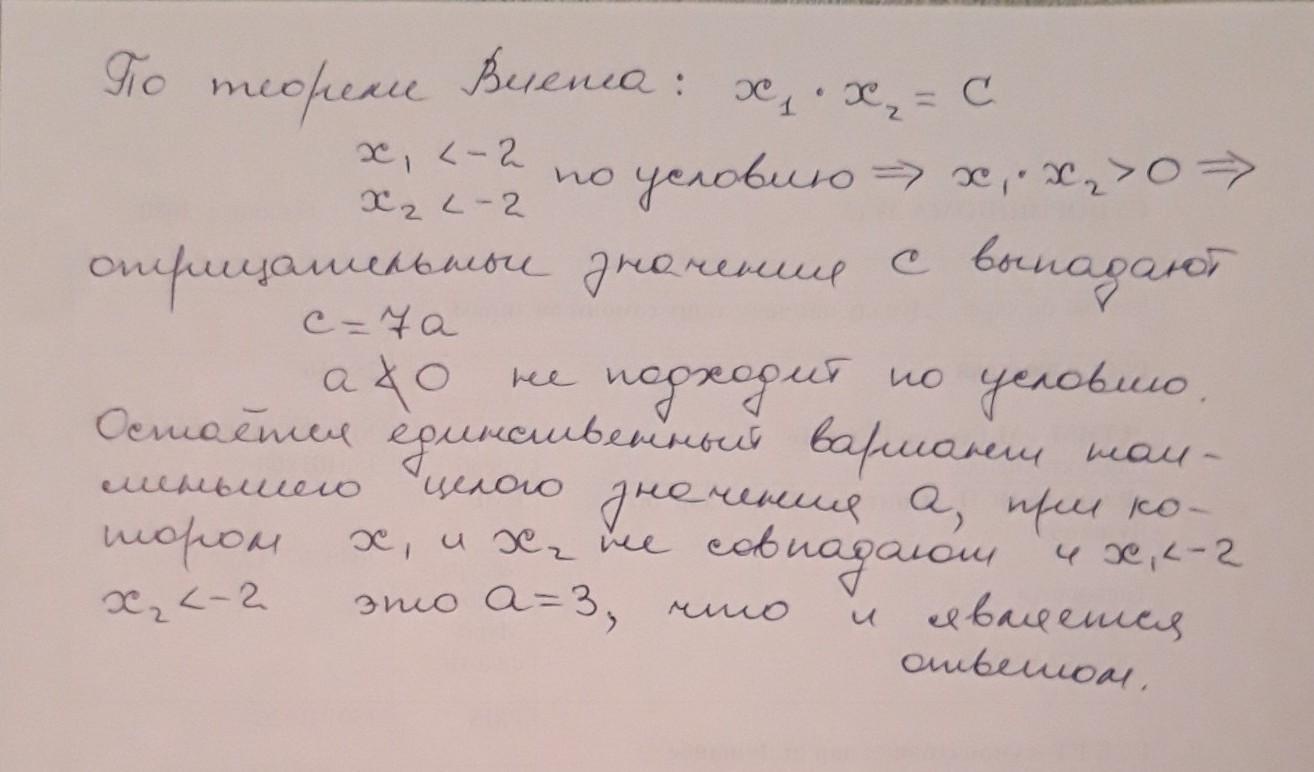 По теореме Виета: x₁ · x₂ = C
x₁ < -2
x₂ < -2 по условию ⇒ x₁ · x₂ > 0 ⇒
отрицательные значения c выпадают
c = 7a
a ≮ 0 не подходит по условию.
Остаётся единственный вариант наи-
меньшего целого значения a, при ко-
тором x₁ и x₂ не совпадают и x₁ < -2
x₂ < -2 это a = 3, что и является
ответом.